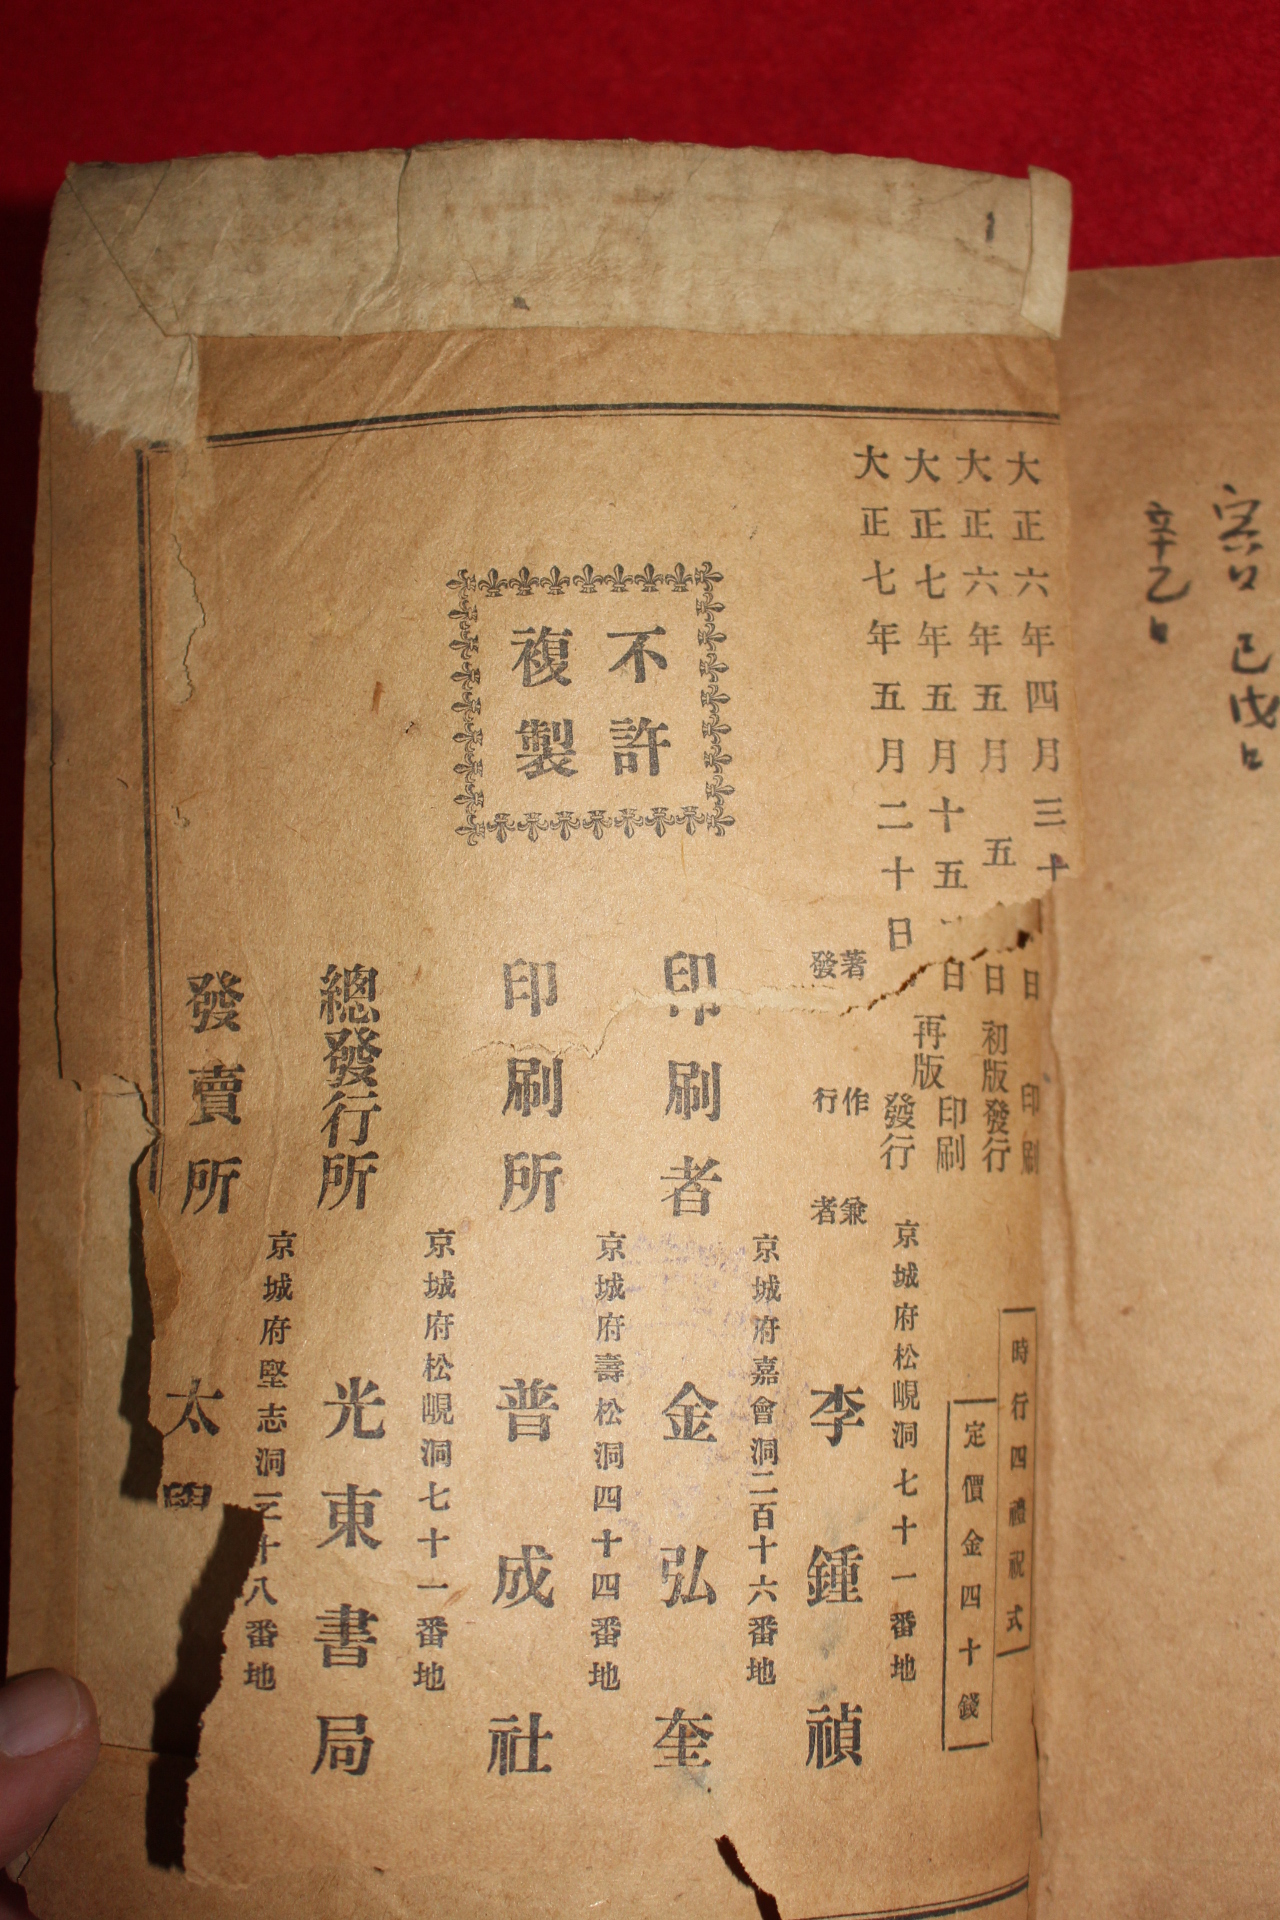 宮口 己戊日
辛乙日
大正六年四月三十日印刷
大正六年五月五日初版發行
大正七年五月十五日再版印刷
大正七年五月二十日發行
時行四禮祝式
定價金四十錢
不許
複製
京城府松峴洞七十一番地
著作兼
發行者
李鍾禎
京城府嘉會洞二百十六番地
印刷者 金弘奎
京城府壽松洞四十四番地
印刷所 普成社
京城府松峴洞七十一番地
總發行所 光東書局
京城府堅志洞三十八番地
發賣所 太